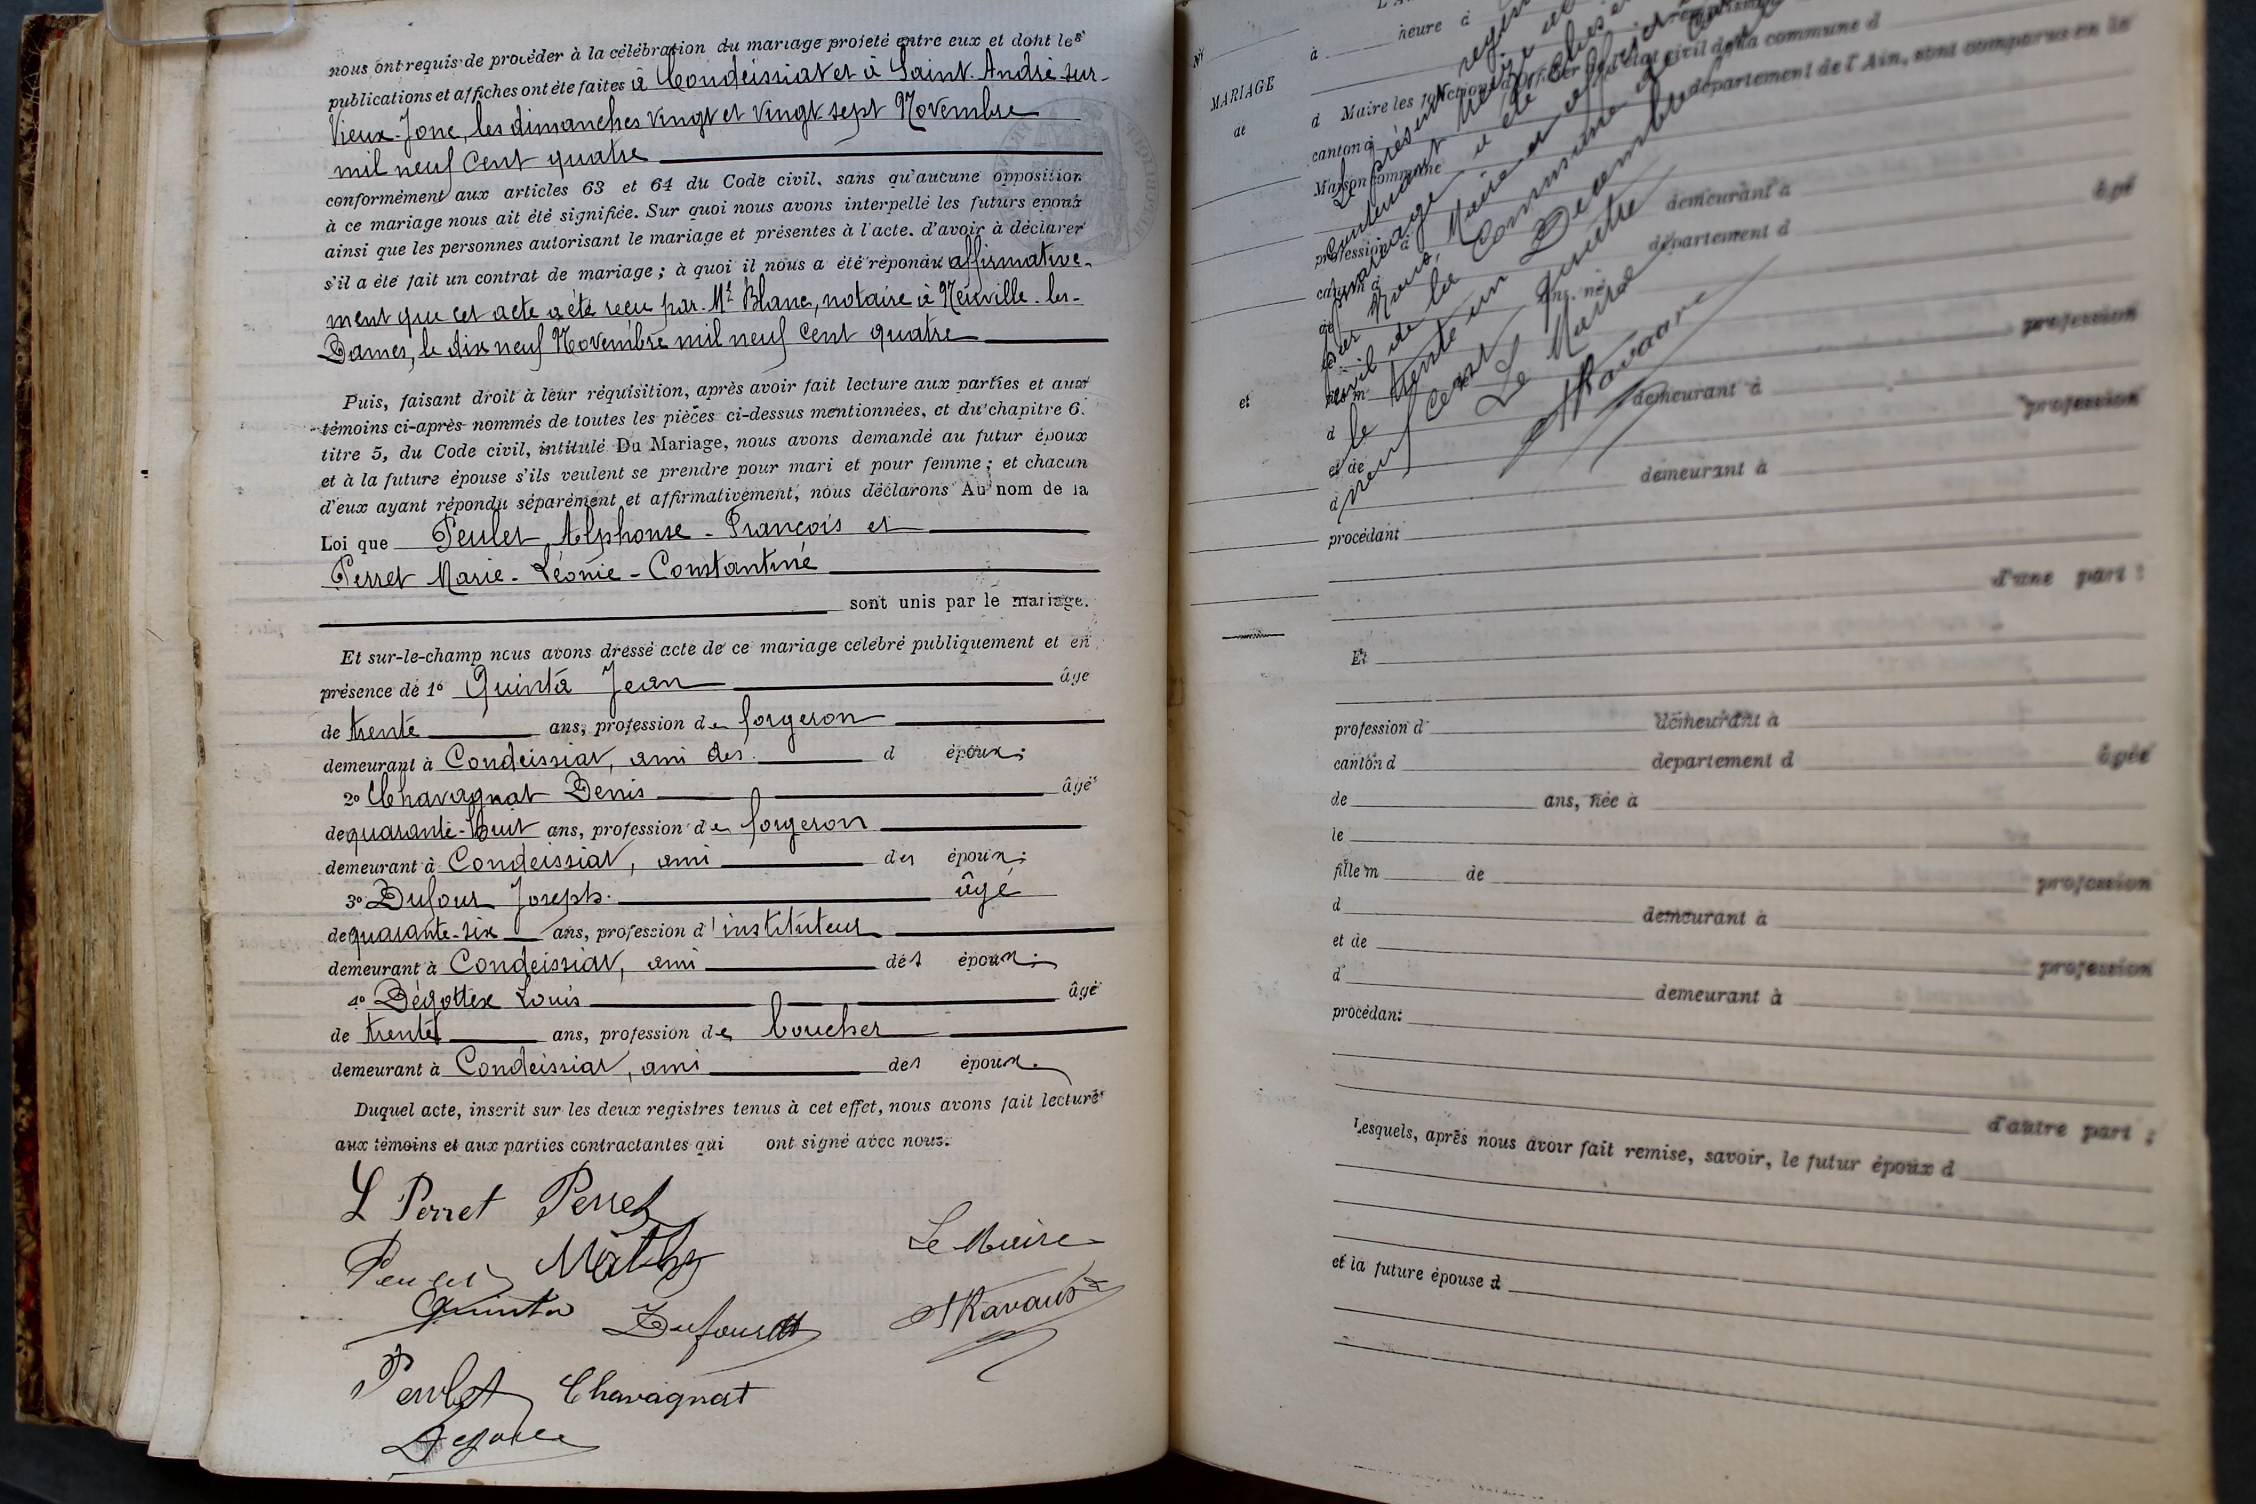 nous ont requis de procéder à la célébration du mariage projeté entre eux et dont les
publications et affiches ont été faites à Condeissiat et à Saint-André-sur-
Vieux-Jonc, les dimanches vingt et vingt-sept Novembre
mil neuf cent quatre
conformément aux articles 63 et 64 du Code civil, sans qu'aucune opposition
à ce mariage nous ait été signifiée. Sur quoi nous avons interpellé les futurs époux
ainsi que les personnes autorisant le mariage et présentes à l'acte. d'avoir à déclarer
s'il a été fait un contrat de mariage ; à quoi il nous a été répondu affirmative-
ment que cet acte a été reçu par Mᵉ Blanc, notaire à Neuville-les-
Dames, le dix neuf Novembre mil neuf cent quatre
Puis, faisant droit à leur réquisition, après avoir fait lecture aux parties et aux
témoins ci-après nommés de toutes les pièces ci-dessus mentionnées, et du chapitre 6.
titre 5, du Code civil, intitulé Du Mariage, nous avons demandé au futur époux
et à la future épouse s'ils veulent se prendre pour mari et pour femme ; et chacun
d'eux ayant répondu séparément et affirmativement, nous déclarons Au nom de la
Loi que Peulet Alphonse-François et
Perret Marie-Léonie-Constantine
sont unis par le mariage.
Et sur-le-champ nous avons dressé acte de ce mariage célébré publiquement et en
présence de 1º Quinta Jean âgé
de trente ans, profession de forgeron
demeurant à Condeissiat, ami des d époux;
2º Chavagnat Denis âgé
de quarante-huit ans, profession de forgeron
demeurant à Condeissiat, ami des époux;
3º Dufour Joseph âgé
de quarante-six ans, profession d'instituteur
demeurant à Condeissiat, ami des époux;
4º Dégottex Louis âgé
de trente ans, profession de boucher
demeurant à Condeissiat, ami des époux.
Duquel acte, inscrit sur les deux registres tenus à cet effet, nous avons fait lecture
aux témoins et aux parties contractantes qui ont signé avec nous.
L Perret Perret
Peulet Mathy
Le Maire
Quinta Dufour
Ravaux
Peulet Chavagnat
heure à
MARIAGE
à
de
d Maire les fonctions d'officier de l'état civil de la commune d
canton d département de l'Ain, sont comparus en la
Maison commune
Le présent registre
contenant
mariages a été clos
par Nous, Maire et officier de l'état
civil de la Commune
le trente un Décembre mil
neuf cent quatre
Le Maire
Ravaux
demeurant à âgé
profession d
canton d département d
de ans, né
profession
et
d demeurant à
et de profession
d demeurant à
procédant
d'une part :
Et
profession d demeurant à
canton d département d âgée
de ans, née à
le
fille m de profession
d demeurant à
et de profession
d demeurant à
procédant
d'autre part ;
Lesquels, après nous avoir fait remise, savoir, le futur époux d
et la future épouse d